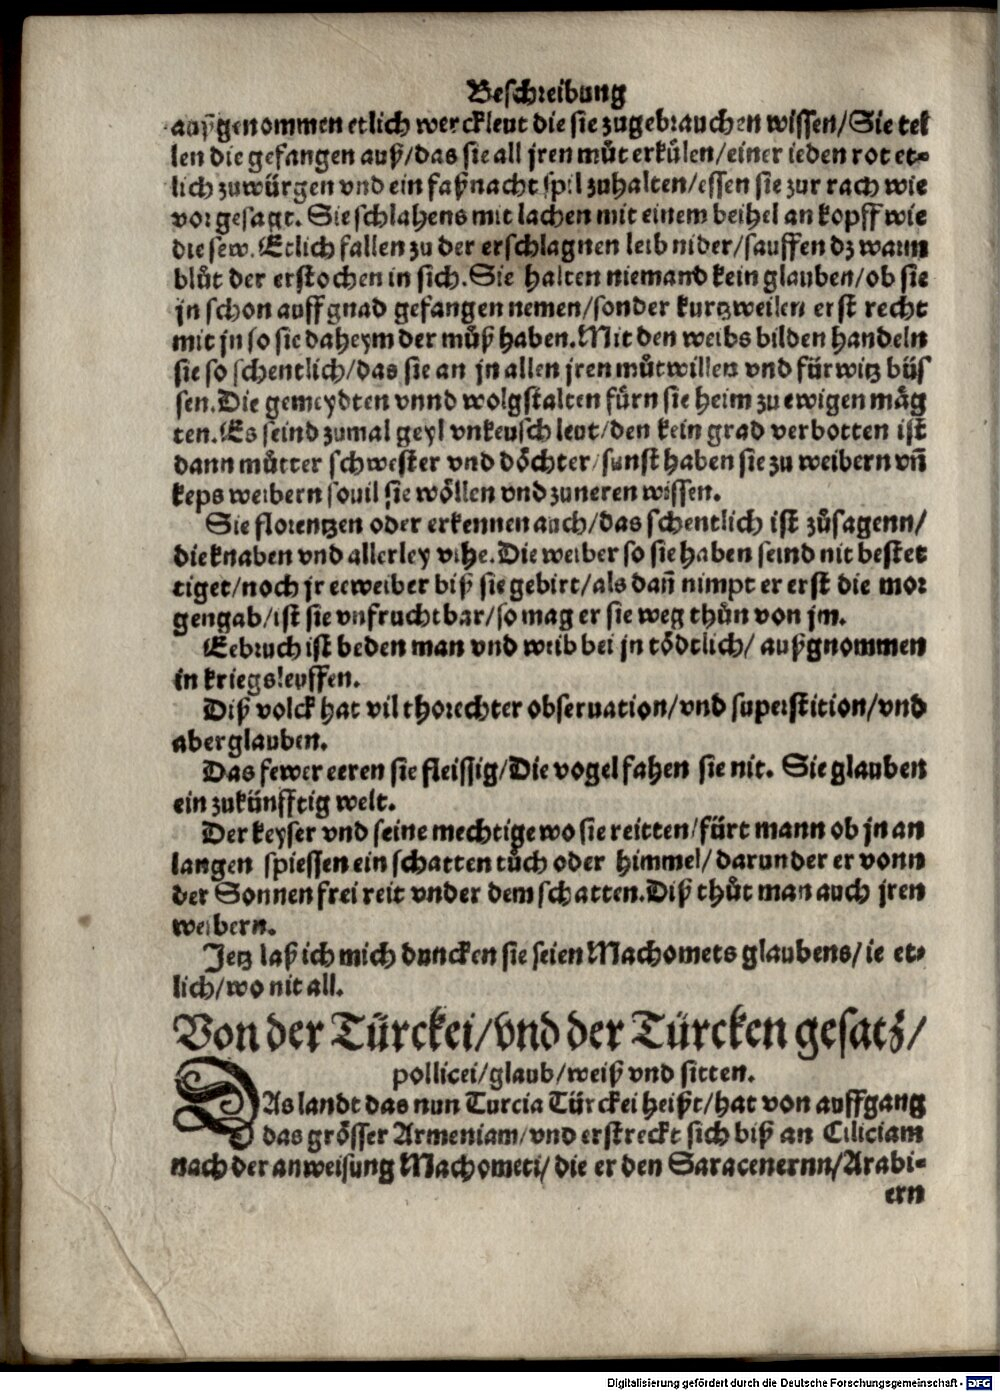 Beschreibung
außgenommen etlich werckleut die sie zugebrauchen wissen/Sie teí
len die gefangen auß/das sie all jren můt erkülen/einer ieden rot et-
lich zuwürgen vnd ein faßnacht spil zuhalten/essen sie zur rach wie
vorgesagt. Sie schlahens mit lachen mit einem beihel an kopff wie
die sew. Etlich fallen zu der erschlagnen leib nider/sauffen dz warm
blůt der erstochen in sich. Sie halten niemand kein glauben/ob sie
jn schon auff gnad gefangen nemen/sonder kurtzweilen erst recht
mit jn so sie daheym der můß haben. Mit den weibs bilden handeln
sie so schentlich/das sie an jn allen jren můtwillen vnd fürwitz büs
sen. Die gemeydten vnnd wolgstalten fürn sie heim zu ewigen mäg
ten. Es seind zumal geyl vnkeusch leut/den kein grad verbotten ist
dann můtter schwester vnd döchter/sunst haben sie zu weibern vñ
kepsweibern souil sie wöllen vnd zuneren wissen.
Sie florentzen oder erkennen auch/das schentlich ist zůsagenn/
die knaben vnd allerley vihe. Die weiber so sie haben seind nit bestet
tiget/noch jr eeweiber biß sie gebirt/als dañ nimpt er erst die mor
gengab/ist sie vnfruchtbar/so mag er sie weg thůn von jm.
Eebruch ist beden man vnd weib bei jn tödtlich/ außgnommen
in kriegsleuffen.
Diß volck hat vil thorechter obseruation/vnd superstition/vnd
aberglauben.
Das fewer eeren sie fleissig/Die vogel fahen sie nit. Sie glauben
ein zukünfftig welt.
Der keyser vnd seine mechtige wo sie reitten/fürt mann ob jn an
langen spiessen ein schatten tůch oder himmel/darunder er vonn
der Sonnen frei reit vnder dem schatten. Diß thůt man auch jren
weibern.
Jetz laß ich mich duncken sie seien Machomets glaubens/ie et-
lich/wo nit all.
Von der Türckei/vnd der Türcken gesatz/
pollicei/glaub/weiß vnd sitten.
DAs landt das nun Turcia Türckei heißt/hat von auffgang
das grösser Armeniam/vnd erstreckt sich biß an Ciliciam
nach der anweisung Machometi/die er den Saracenernn/Arabi-
ern
Digitalisierung gefördert durch die Deutsche Forschungsgemeinschaft - DFG